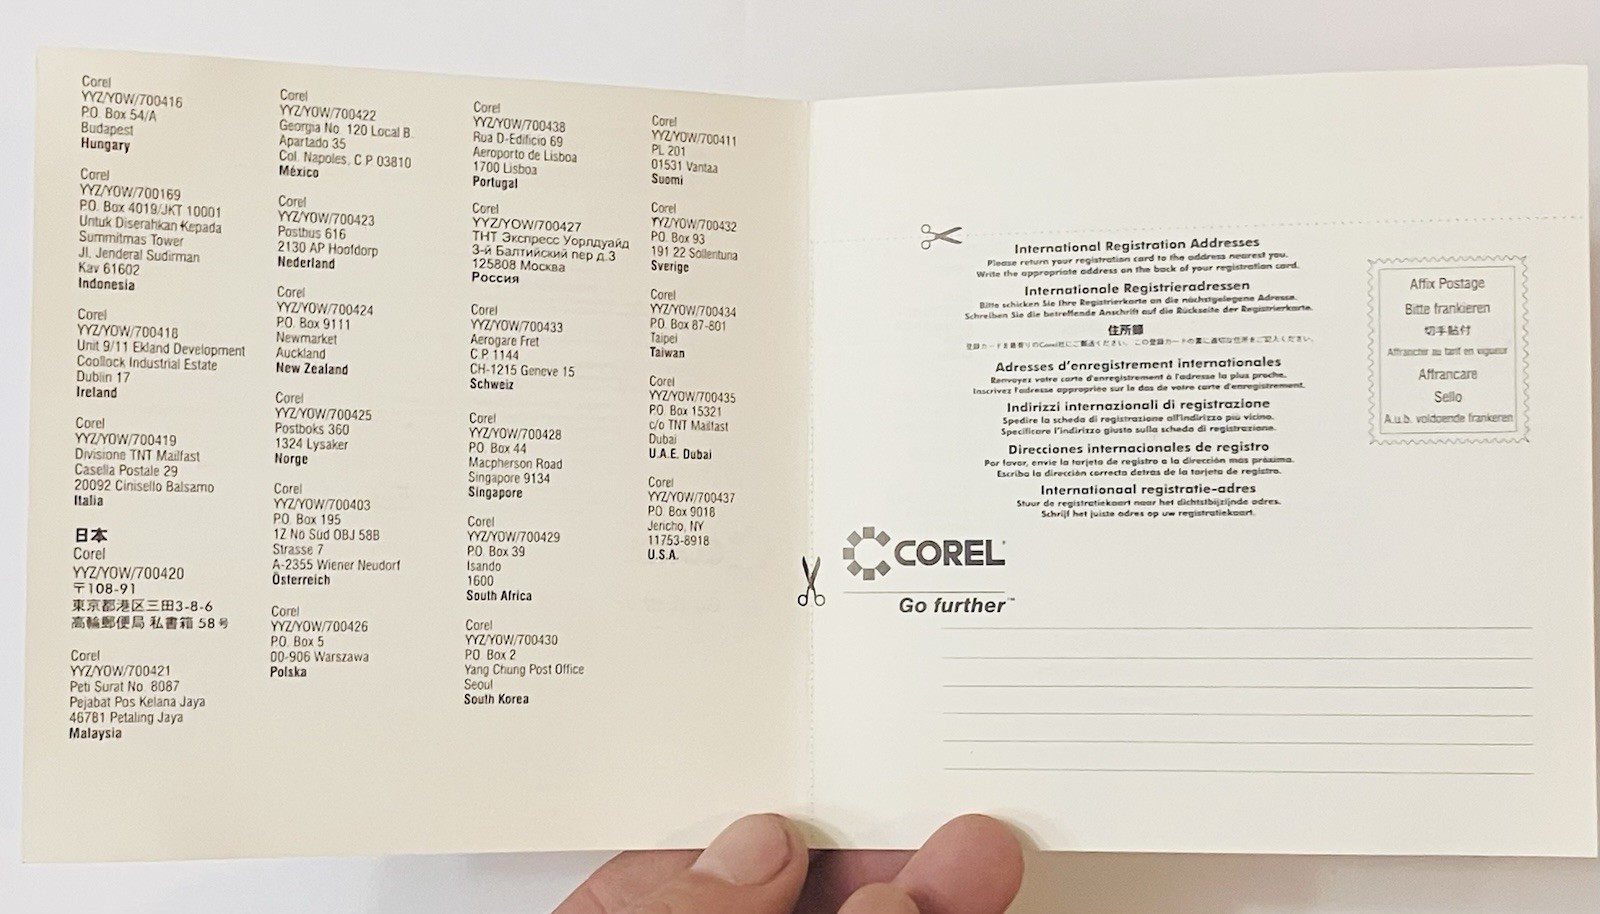 Corel
YYZ/YOW/700416
P.O. Box 54/A
Budapest
Hungary
Corel
YYZ/YOW/700169
P.O. Box 4019/JKT 10001
Untuk Diserahkan Kepada
Summitmas Tower
Jl. Jenderal Sudirman
Kav 61602
Indonesia
Corel
YYZ/YOW/700418
Unit 9/11 Ekland Development
Coollock Industrial Estate
Dublin 17
Ireland
Corel
YYZ/YOW/700419
Divisione TNT Mailfast
Casella Postale 29
20092 Cinisello Balsamo
Italia
日本
Corel
YYZ/YOW/700420
〒108-91
東京都港区三田3-8-6
高輪郵便局 私書箱 58号
Corel
YYZ/YOW/700421
Peti Surat No. 8087
Pejabat Pos Kelana Jaya
46781 Petaling Jaya
Malaysia
Corel
YYZ/YOW/700422
Georgia No. 120 Local B.
Apartado 35
Col. Napoles, C.P 03810
México
Corel
YYZ/YOW/700423
Postbus 616
2130 AP Hoofdorp
Nederland
Corel
YYZ/YOW/700424
P.O. Box 9111
Newmarket
Auckland
New Zealand
Corel
YYZ/YOW/700425
Postboks 360
1324 Lysaker
Norge
Corel
YYZ/YOW/700403
P.O. Box 195
1Z No Süd OBJ 58B
Strasse 7
A-2355 Wiener Neudorf
Österreich
Corel
YYZ/YOW/700426
P.O. Box 5
00-906 Warszawa
Polska
Corel
YYZ/YOW/700438
Rua D-Edificio 69
Aeroporto de Lisboa
1700 Lisboa
Portugal
Corel
YYZ/YOW/700427
ТНТ Экспресс Уорлдуайд
3-й Балтийский пер д.3
125808 Москва
Россия
Corel
YYZ/YOW/700433
Aerogare Fret
C.P. 1144
CH-1215 Geneve 15
Schweiz
Corel
YYZ/YOW/700428
P.O. Box 44
Macpherson Road
Singapore 9134
Singapore
Corel
YYZ/YOW/700429
P.O. Box 39
Isando
1600
South Africa
Corel
YYZ/YOW/700430
P.O. Box 2
Yang Chung Post Office
Seoul
South Korea
Corel
YYZ/YOW/700411
PL 201
01531 Vantaa
Suomi
Corel
YYZ/YOW/700432
P.O. Box 93
191 22 Sollentuna
Sverige
Corel
YYZ/YOW/700434
P.O. Box 87-801
Taipei
Taiwan
Corel
YYZ/YOW/700435
P.O. Box 15321
c/o TNT Mailfast
Dubai
U.A.E. Dubai
Corel
YYZ/YOW/700437
P.O. Box 9018
Jericho, NY
11753-8918
U.S.A.
International Registration Addresses
Please return your registration card to the address nearest you.
Write the appropriate address on the back of your registration card.
Internationale Registrieradressen
Bitte schicken Sie Ihre Registrierkarte an die nächstgelegene Adresse.
Schreiben Sie die betreffende Anschrift auf die Rückseite der Registrierkarte.
住所録
登録カードを最寄りのCorel社にご郵送ください。この登録カードの裏に適切な住所をご記入ください。
Adresses d'enregistrement internationales
Renvoyez votre carte d'enregistrement à l'adresse la plus proche.
Inscrivez l'adresse appropriée sur le dos de votre carte d'enregistrement.
Indirizzi internazionali di registrazione
Spedire la scheda di registrazione all'indirizzo più vicino.
Specificare l'indirizzo giusto sulla scheda di registrazione.
Direcciones internacionales de registro
Por favor, envíe la tarjeta de registro a la dirección más próxima.
Escriba la dirección correcta detrás de la tarjeta de registro.
Internationaal registratie-adres
Stuur de registratiekaart naar het dichtstbijzijnde adres.
Schrijf het juiste adres op uw registratiekaart.
Affix Postage
Bitte frankieren
切手貼付
Affranchir au tarif en vigueur
Affrancare
Sello
A.u.b. voldoende frankeren
COREL®
Go further™